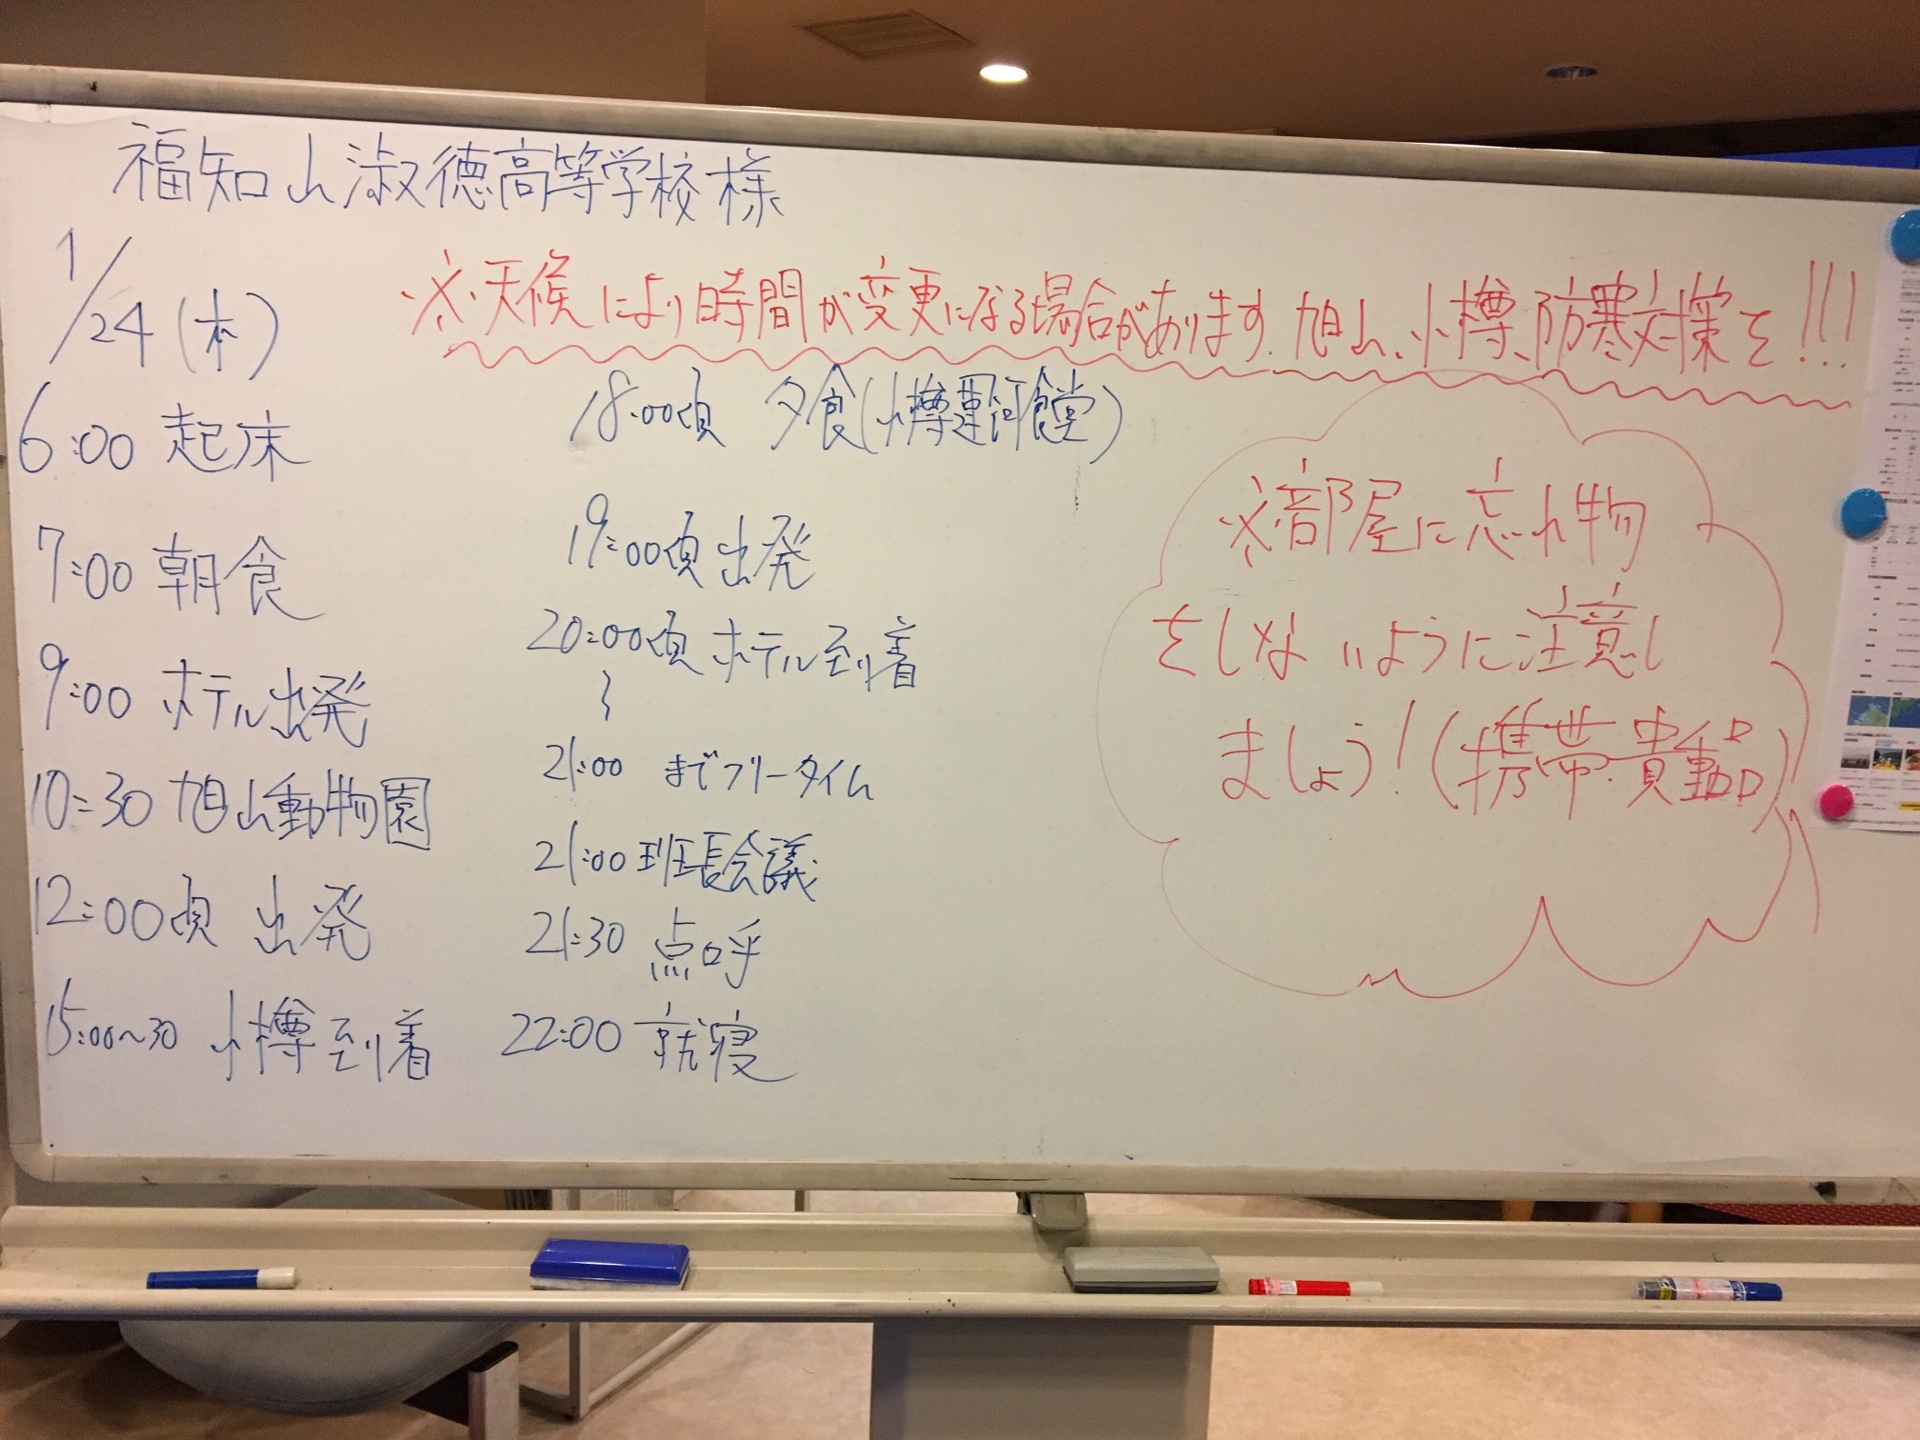 福知山淑徳高等学校様
1/24(木)
※天候により時間が変更になる場合があります。旭山、小樽、防寒対策を!!!
6:00 起床
7:00 朝食
9:00 ホテル出発
10:30 旭山動物園
12:00頃 出発
15:00~30 小樽到着
18:00頃 夕食(小樽運河食堂)
19:00頃 出発
20:00頃 ホテル到着
〜
21:00 までフリータイム
21:00 班長会議
21:30 点呼
22:00 就寝
※部屋に忘れ物
をしないように注意し
ましょう!(携帯・貴重品)